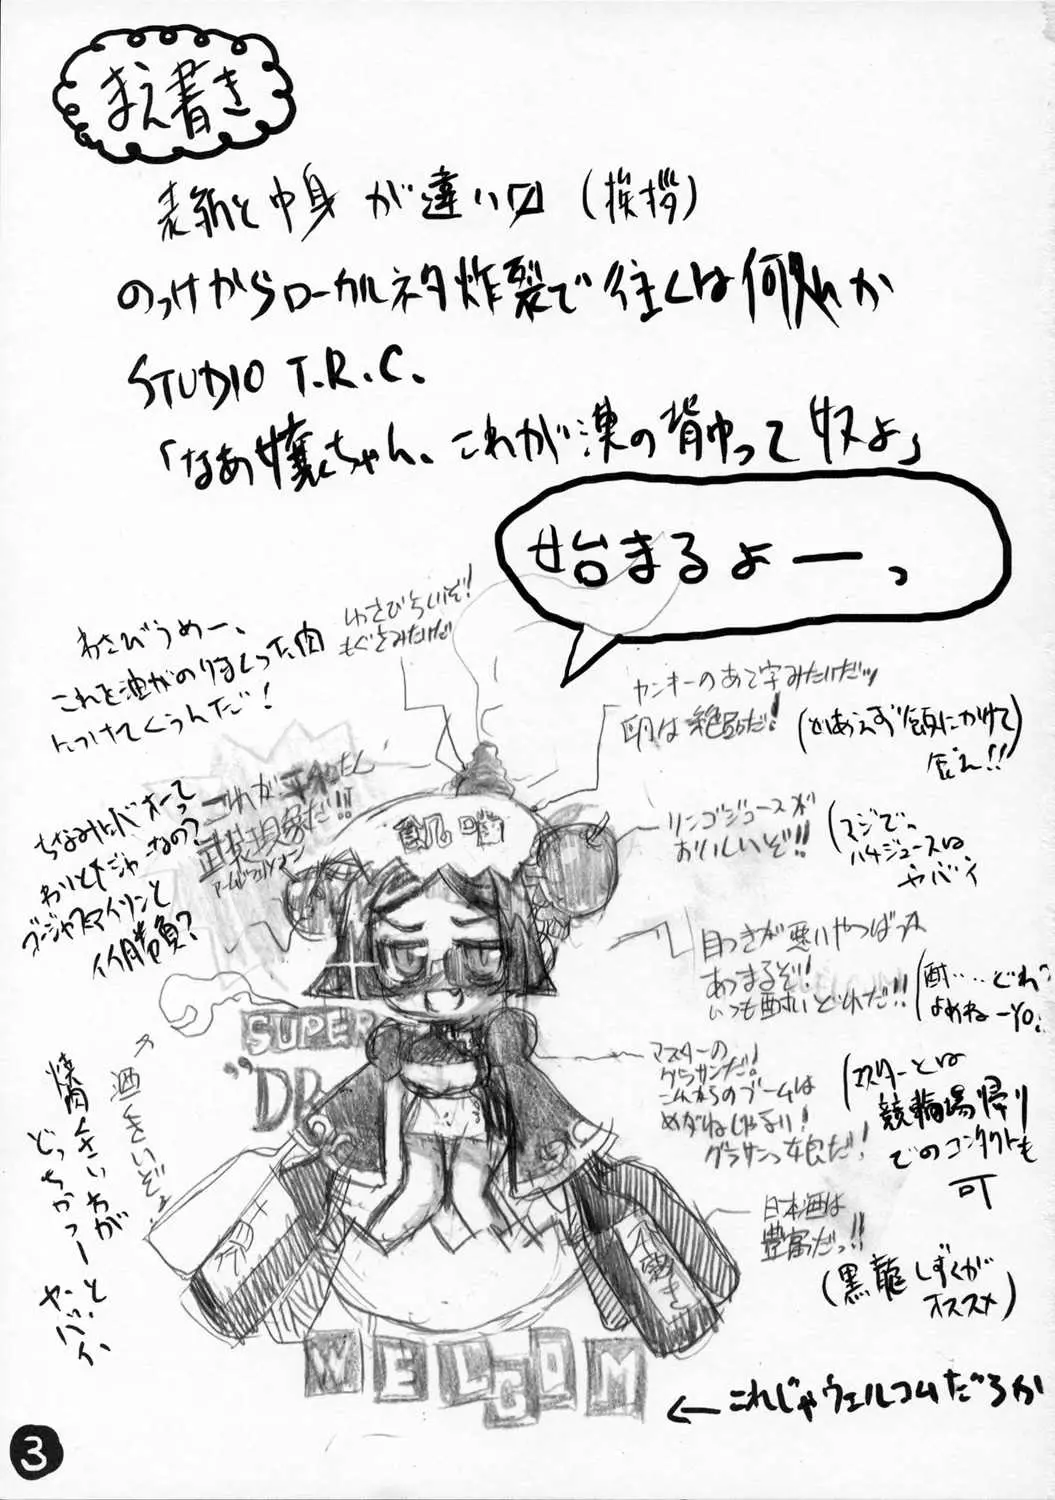 まえ書き
表紙と中身が違い〼(挨拶)
のっけからローカルネタ炸裂で往くは何処か
STUDIO T.R.C.
「なあ嬢ちゃん、これが漢の背中って奴よ」
始まるよーっ
わさびうめー、
これを油がのりまくった肉
につけてくうんだ!
わさびらいいぞ!
もぐさみたいだ
ヤンキーのあて字みたいだッ
卵は絶品だ!
(とりあえず飯にかけて
食え!!)
これが平和たん
武装現象だ!!
アームドフェノメノン
凱嘴
ちなみにバオーって
わりとドジャーなの?
リンゴジュースが
おいしいぞ!!
(マジで。
ハチジュースは
ヤバイ)
目つきが悪いやつばっか
あつまるぞ!
いつも酔いどれだ!!
(酔……どれ?
よめねーYO!)
マスターの
グラサンだ!
これからのブームは
めがねじゃない!
グラサンっ娘だ!
(マスターとは
競輪場帰り
でのコンタクトも
可)
日本酒は
豊富だっ!!
(黒龍しずくが
オススメ)
酒くさいぞ!
焼肉くさいわが
どっちかっつーと
ヤバイ
SUPER
"DR
WELCOM
←これじゃウェルコムだろが
3